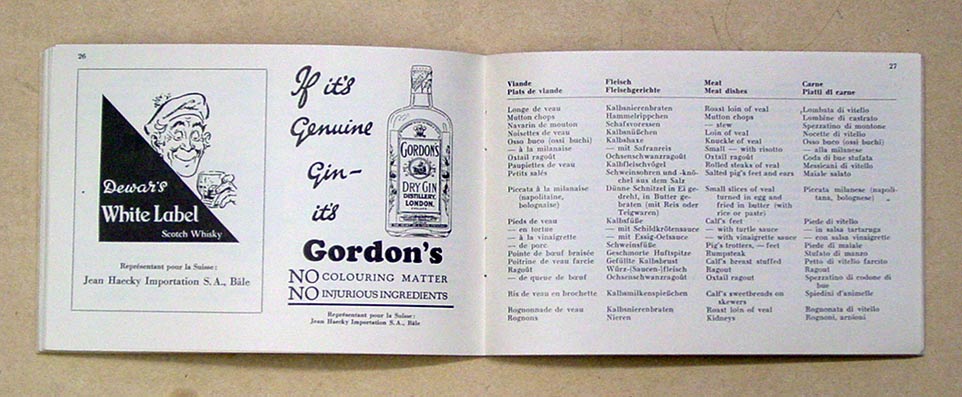 26
Dewar's
White Label
Scotch Whisky
Représentant pour la Suisse:
Jean Haecky Importation S. A., Bâle
If it's
Genuine
Gin—
it's
GORDON'S
DRY GIN
DISTILLERY,
LONDON.
Gordon's
NO COLOURING MATTER
NO INJURIOUS INGREDIENTS
Représentant pour la Suisse:
Jean Haecky Importation S. A., Bâle
27
Viande Fleisch Meat Carne
Plats de viande Fleischgerichte Meat dishes Piatti di carne
Longe de veau Kalbsnierenbraten Roast loin of veal Lombata di vitello
Mutton chops Hammelrippchen Mutton chops Lombine di castrato
Navarin de mouton Schafsvoressen — stew Spezzatino di montone
Noisettes de veau Kalbsnüßchen Loin of veal Nocette di vitello
Osso buco (ossi buchi) Kalbshaxe Knuckle of veal Osso buco (ossi buchi)
— à la milanaise — mit Safranreis Small — with risotto — alla milanese
Oxtail ragoût Ochsenschwanzragoût Oxtail ragoût Coda di bue stufata
Paupiettes de veau Kalbfleischvögel Rolled steaks of veal Messicani di vitello
Petits salés Schweinsohren und -knö- Salted pig's feet and ears Maiale salato
chel aus dem Salz
Piccata à la milanaise Dünne Schnitzel in Ei ge- Small slices of veal Piccata milanese (napoli-
(napolitaine, dreht, in Butter ge- turned in egg and tana, bolognese)
bolognaise) braten (mit Reis oder fried in butter (with
Teigwaren) rice or paste)
Pieds de veau Kalbsfüße Calf's feet Piede di vitello
— en tortue — mit Schildkrötensauce — with turtle sauce — in salsa tartaruga
— à la vinaigrette — mit Essig-Oelsauce — with vinaigrette sauce — con salsa vinaigrette
— de porc Schweinsfüße Pig's trotters, — feet Piede di maiale
Pointe de bœuf braisée Geschmorte Huftspitze Rumpsteak Stufato di manzo
Poitrine de veau farcie Gefüllte Kalbsbrust Calf's breast stuffed Petto di vitello farcito
Ragoût Würz-(Saucen-)fleisch Ragout Ragout
— de queue de bœuf Ochsenschwanzragoût Oxtail ragout Spezzatino di codone di
bue
Ris de veau en brochette Kalbsmilkenspießchen Calf's sweetbreads on Spiedini d'animelle
skewers
Rognonnade de veau Kalbsnierenbraten Roast loin of veal Rognonata di vitello
Rognons Nieren Kidneys Rognoni, arnioni